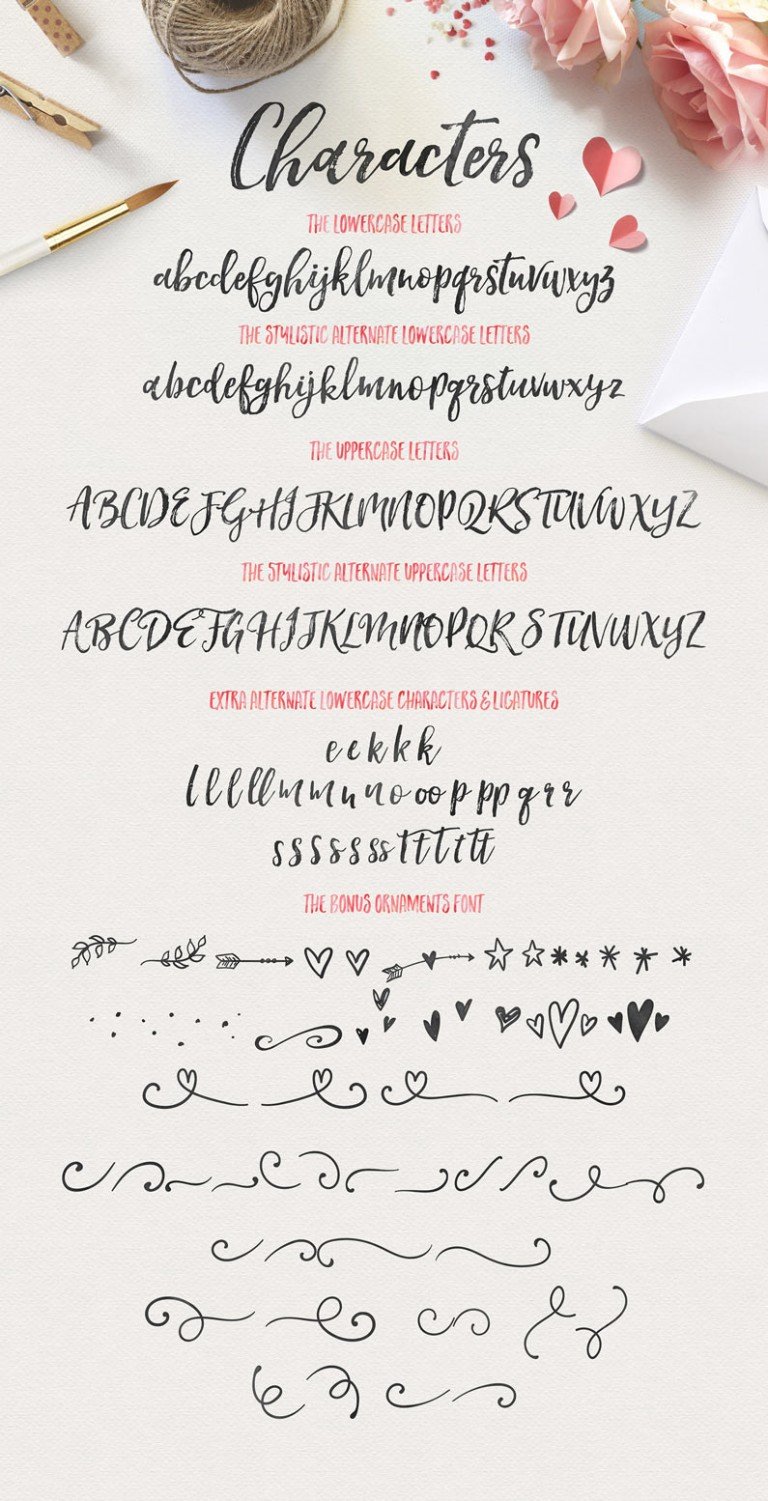 Characters
THE LOWERCASE LETTERS
abcdefghijklmnopqrstuvwxyz
THE STYLISTIC ALTERNATE LOWERCASE LETTERS
abcdefghijklmnopqrstuvwxyz
THE UPPERCASE LETTERS
ABCDEFGHIJKLMNOPQRSTUVWXYZ
THE STYLISTIC ALTERNATE UPPERCASE LETTERS
ABCDEFGHIJKLMNOPQRSTUVWXYZ
EXTRA ALTERNATE LOWERCASE CHARACTERS & LIGATURES
e e k k k
l l l ll m m u n o oo p pp q r r
s s s s s s ss t t t t tt
THE BONUS ORNAMENTS FONT